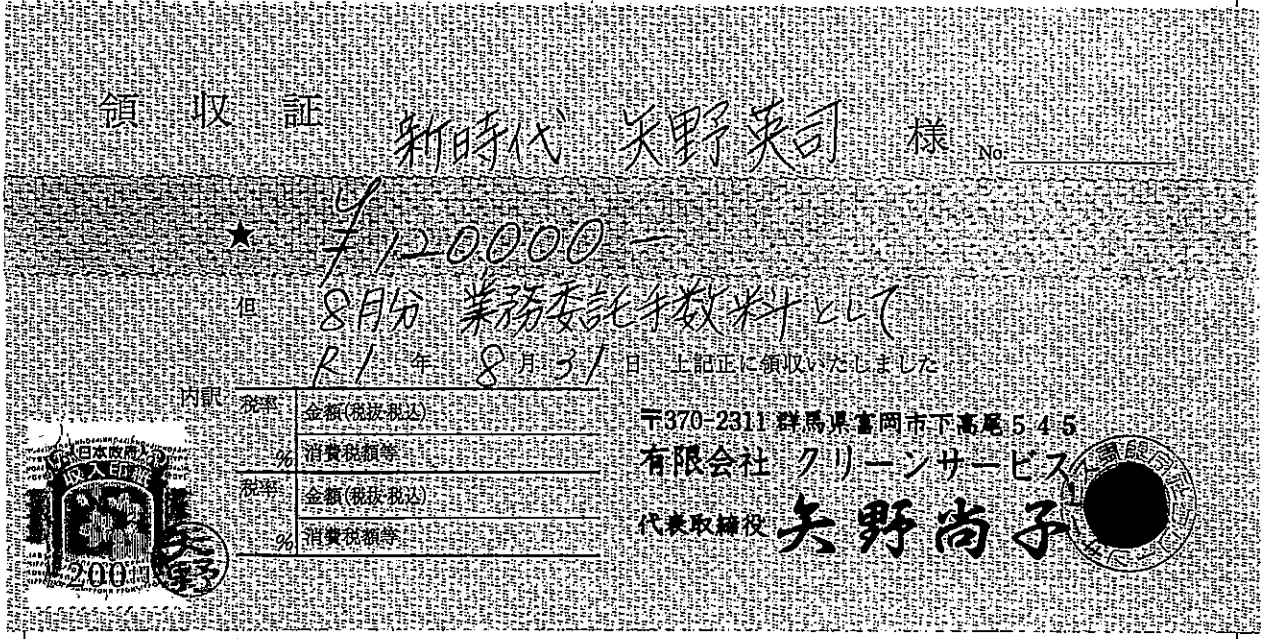 領収証 新時代 矢野英司 様 No.
★ ¥120000-
但 8月分 業務委託手数料として
R1年 8月31日 上記正に領収いたしました
内訳
税率 金額(税抜・税込)
% 消費税額等
税率 金額(税抜・税込)
% 消費税額等
〒370-2311 群馬県富岡市下高尾545
有限会社 クリーンサービス
代表取締役 矢野尚子
日本政府
収入印紙
200円
矢野